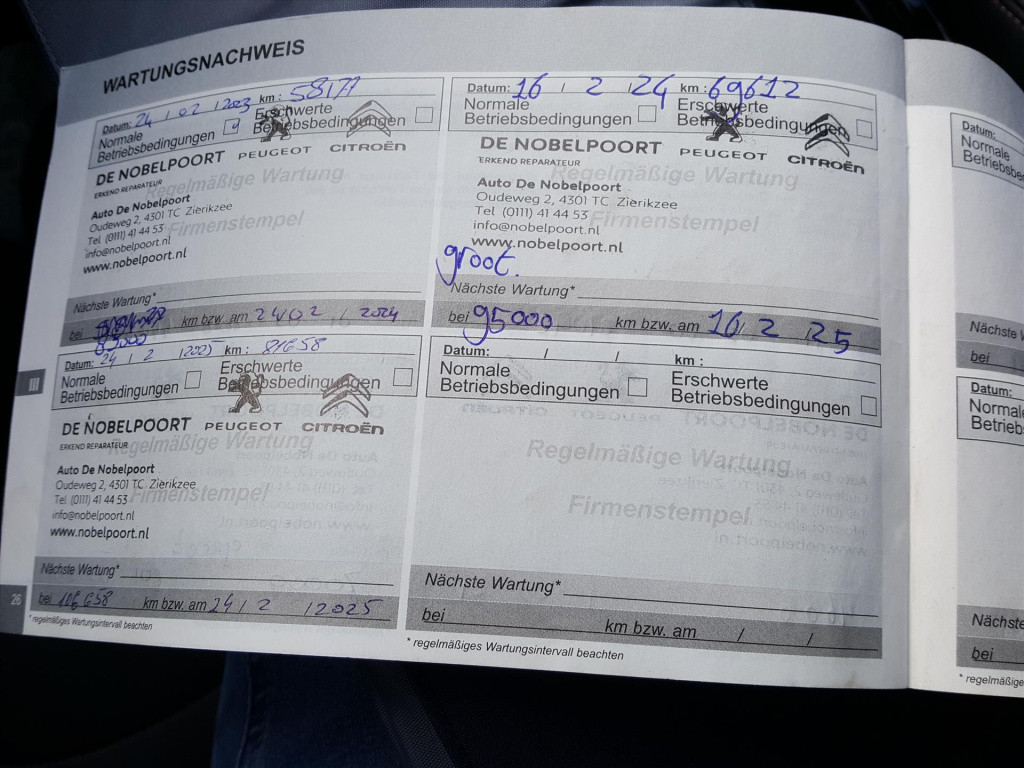 WARTUNGSNACHWEIS
Datum: 24 / 02 / 2023 km: 58177
Normale Betriebsbedingungen
Erschwerte Betriebsbedingungen
DE NOBELPOORT PEUGEOT CITROËN
ERKEND REPARATEUR
Regelmäßige Wartung
Auto De Nobelpoort
Oudeweg 2, 4301 TC Zierikzee
Tel (0111) 41 44 53
Firmenstempel
info@nobelpoort.nl
www.nobelpoort.nl
Nächste Wartung*
bei 83000 km bzw. am 24/02 / 2024
Datum: 16 / 2 / 24 km: 69612
Normale Betriebsbedingungen
Erschwerte Betriebsbedingungen
DE NOBELPOORT PEUGEOT CITROËN
ERKEND REPARATEUR
Regelmäßige Wartung
Auto De Nobelpoort
Oudeweg 2, 4301 TC Zierikzee
Tel (0111) 41 44 53
Firmenstempel
info@nobelpoort.nl
www.nobelpoort.nl
groot.
Nächste Wartung*
bei 95000 km bzw. am 16 / 2 / 25
Datum: 24 / 2 / 2025 km: 81658
Normale Betriebsbedingungen
Erschwerte Betriebsbedingungen
DE NOBELPOORT PEUGEOT CITROËN
ERKEND REPARATEUR
Regelmäßige Wartung
Auto De Nobelpoort
Oudeweg 2, 4301 TC Zierikzee
Tel (0111) 41 44 53
Firmenstempel
info@nobelpoort.nl
www.nobelpoort.nl
Nächste Wartung*
bei 106658 km bzw. am 24 / 2 / 2025
* regelmäßiges Wartungsintervall beachten
Datum: / / km:
Normale Betriebsbedingungen
Erschwerte Betriebsbedingungen
Regelmäßige Wartung
Firmenstempel
Nächste Wartung*
bei km bzw. am / /
* regelmäßiges Wartungsintervall beachten
III
26
Datum:
Normale
Nächste
bei
Datum:
Nächste
bei